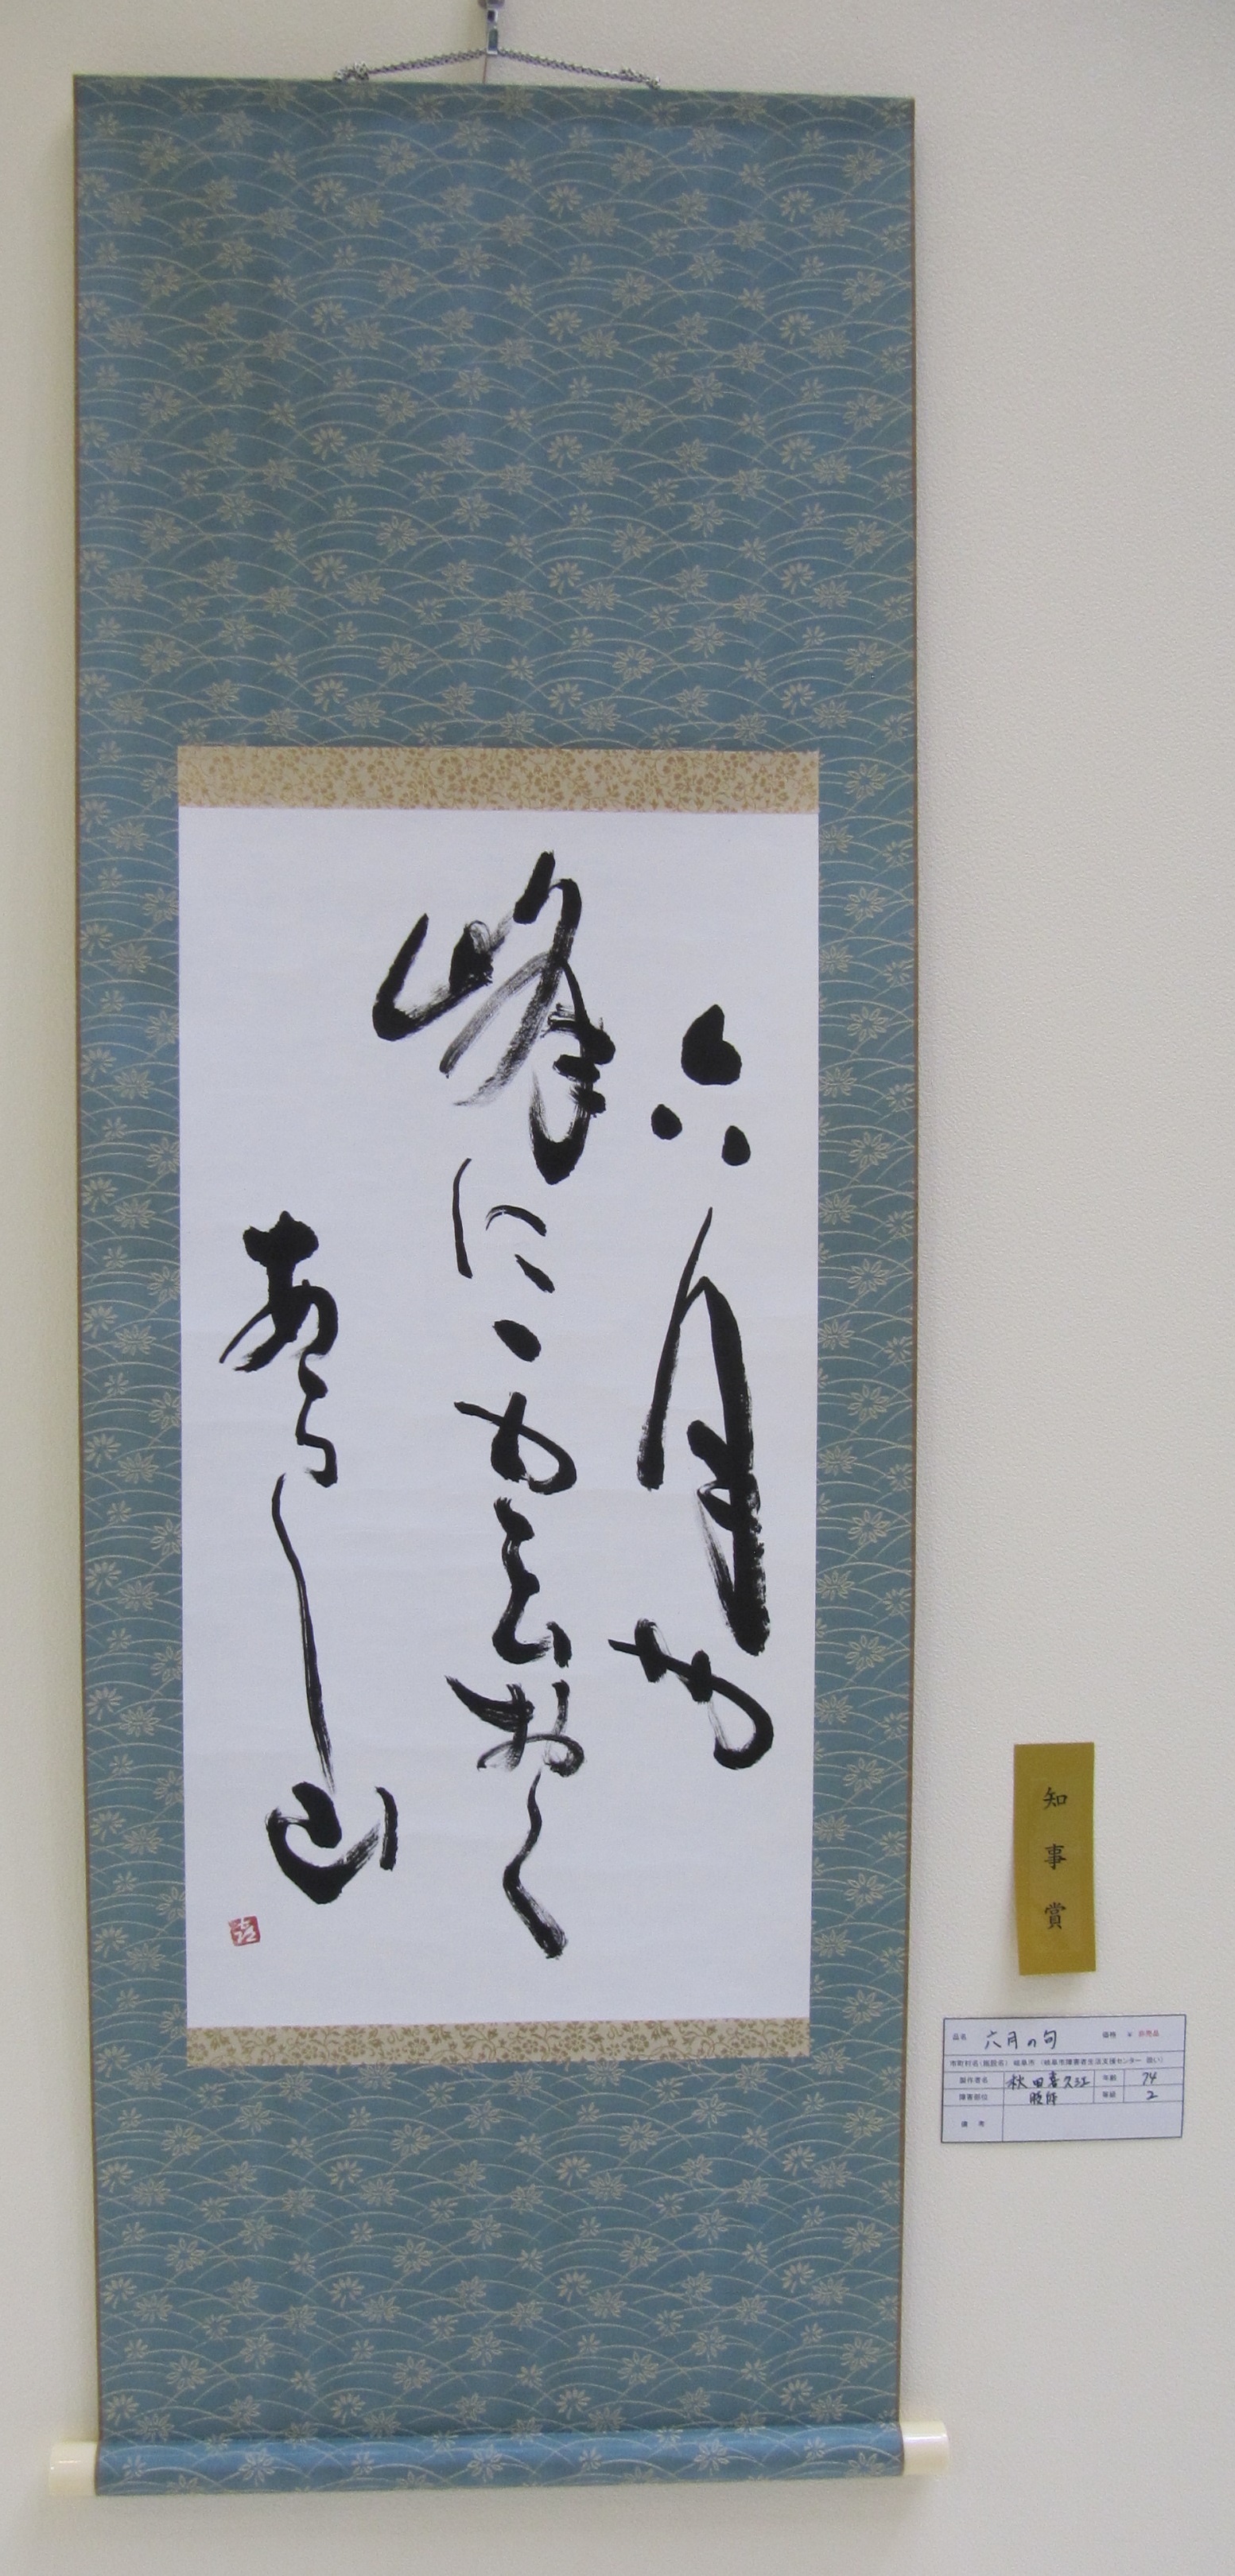 六月や
峰に雲おく
あらし山
知事賞
品名 六月の句 価格 ¥ 非売品
市町村名(施設名) 岐阜市 (岐阜市障害者生活支援センター 扱い)
製作者名 秋田喜久江 年齢 74
障害部位 等級 2
備考